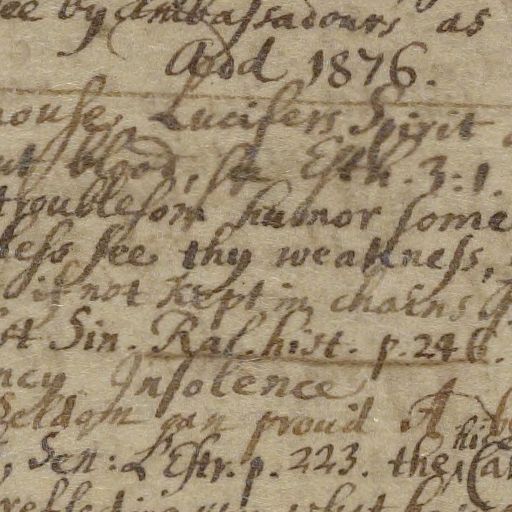 ee by Ambassadours as
Add 1876.
house, Lucifers Spirit
ut blood, Esth. 3:1.
troublesom humor some
less see thy weakness,
if not kept in chains
st Sin. Ral. hist. p. 246.
ncy Insolence
Seldom can proud
Sen: L'Estr. p. 223. the